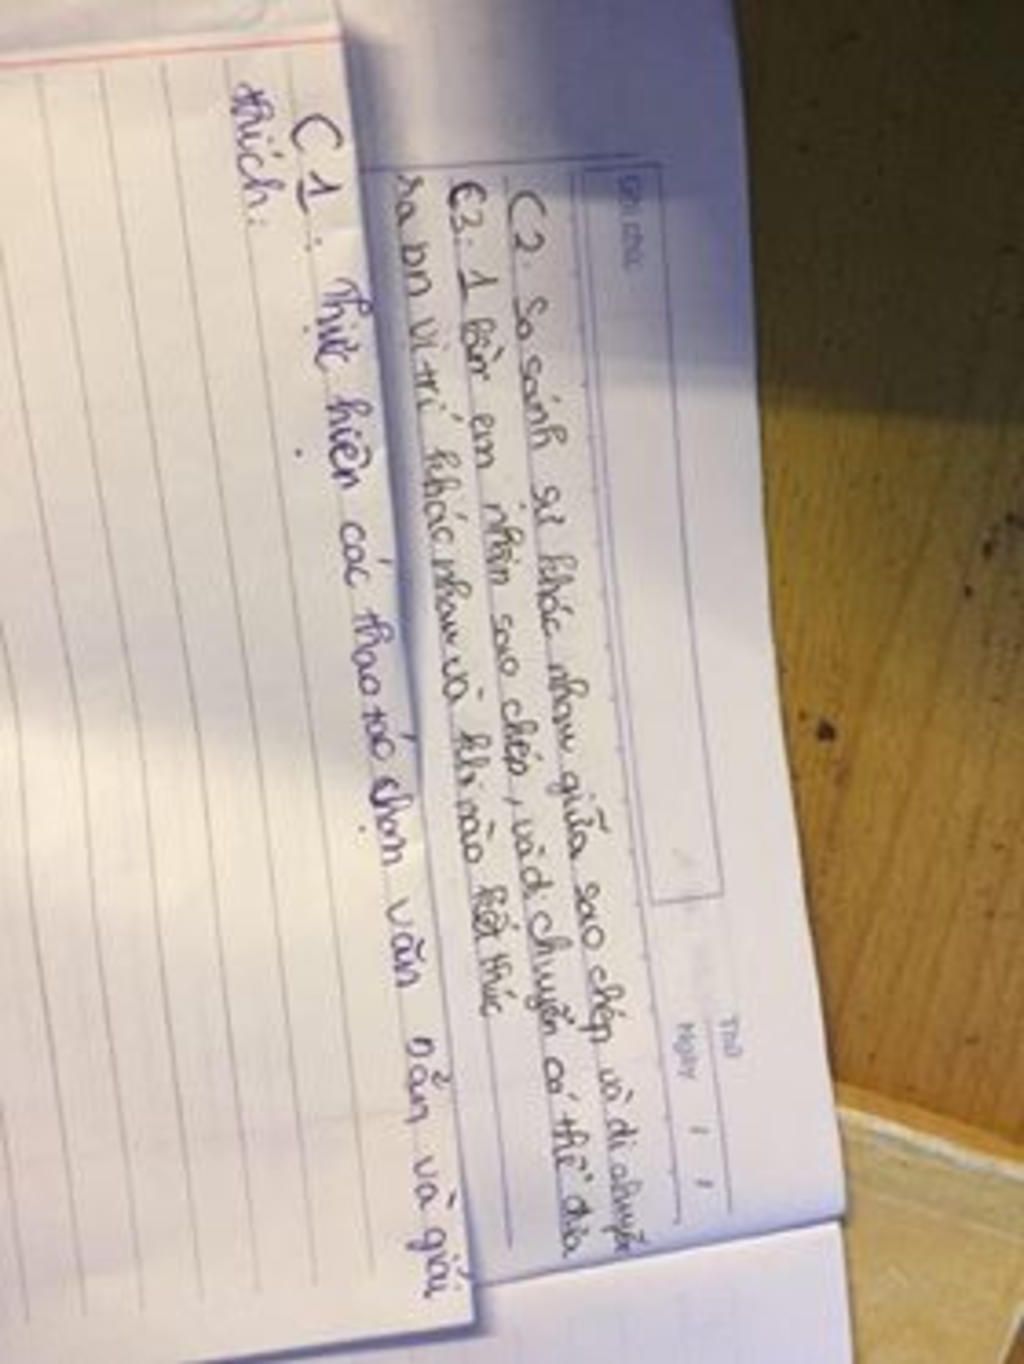 Thứ
Ngày / /
Ghi chú
C2. So sánh sự khác nhau giữa sao chép và di chuyển
C3. 1 lần em nhấn sao chép, và di chuyển có thể đưa
ra bn vị trí khác nhau và khi nào kết thúc
C1: Thực hiện các thao tác chọn văn bản và giải
thích: